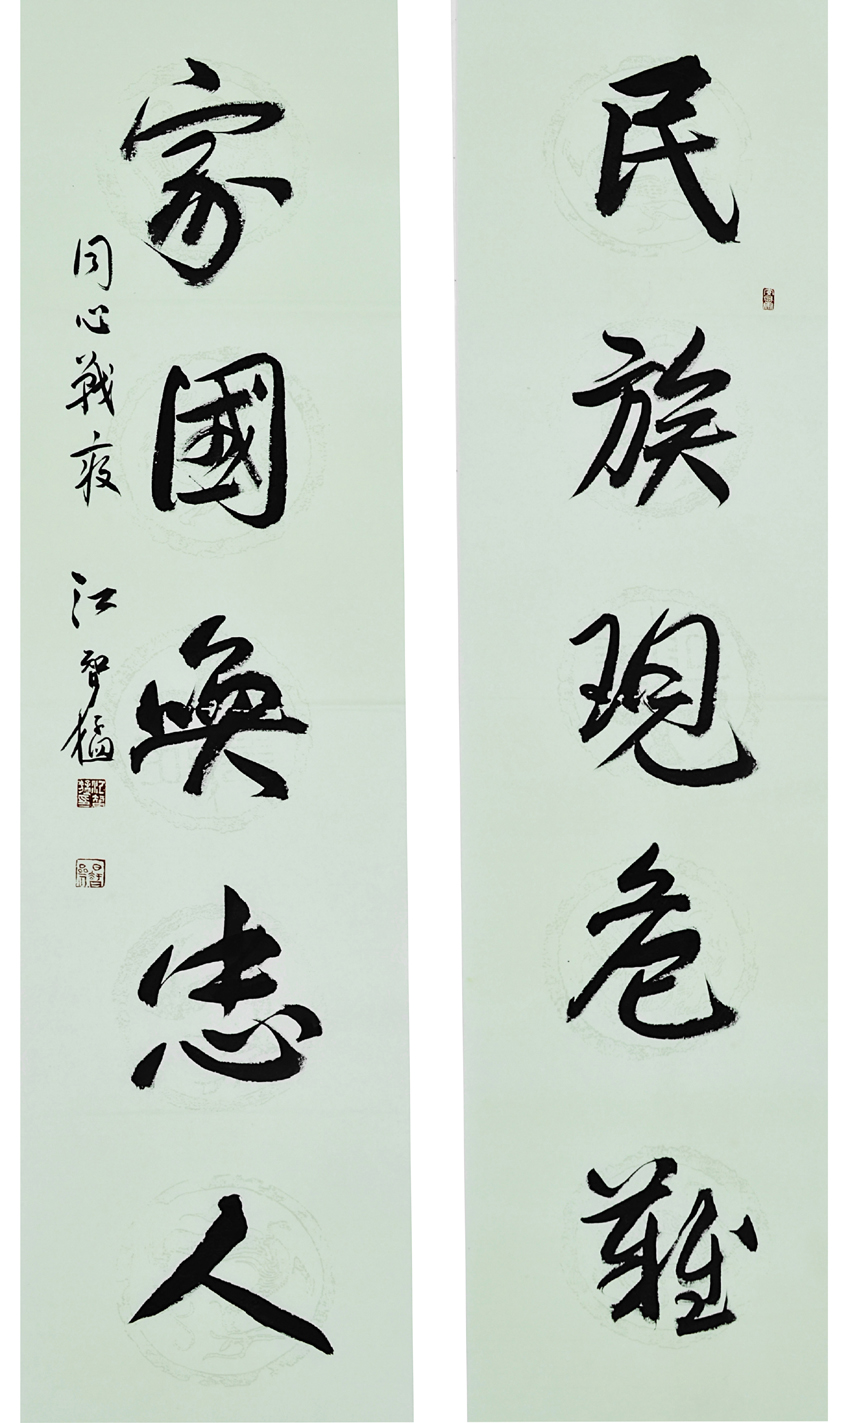 民族現危難
家國喚忠人
同心戰疫
江智猛